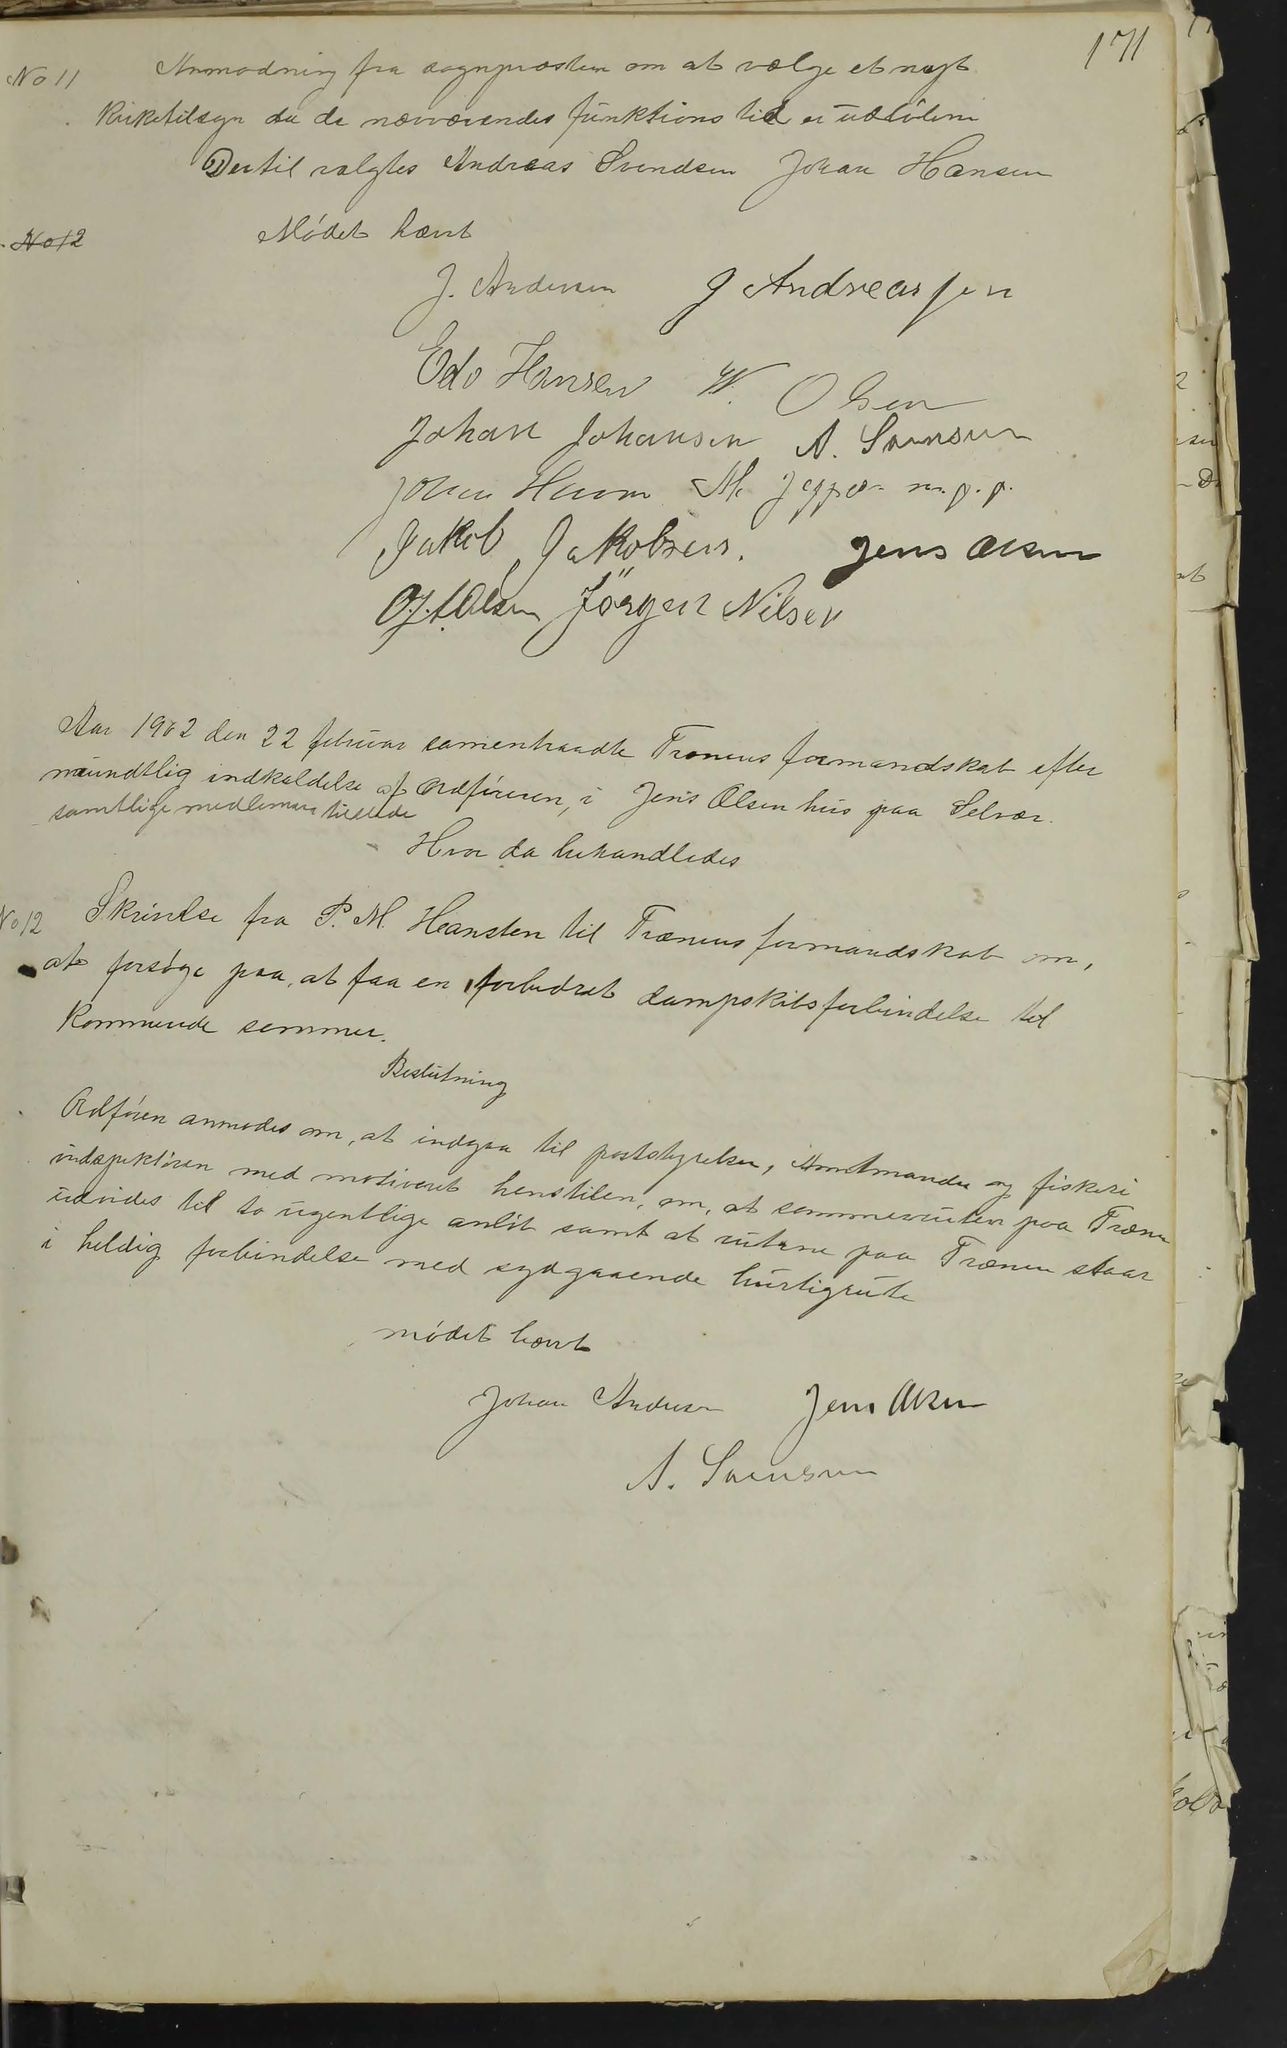 171
No 11 Anmodning fra sognpræsten om at vælge et nyt
kirketilsyn da de nærværendes funktions tid er udløben
Dertil valgtes Andreas Svendsen Johan Hansen
No 12 Mødet hævt
J. Andersen J Andreassen
Edv Hansen W. Olsen
Johan Johansen A. Svensen
Johan Hansen M. Jeppesen m.p.p.
Jakob Jakobsen. Jens Olsen
Olsen Jörgen Nilsen
Aar 1902 den 22 februar samentraadte Trænens formandskab efter
mundtlig indkaldelse af Ordføreren, i Jens Olsen hus paa Selvær.
samtlige medlemmer tilstede
Hvor da behandledes
No 12 Skrivelse fra P. M. Hansten til Trænens formandskab om,
at forsøge paa, at faa en forbedret dampskibsforbindelse til
kommende sommer.
Beslutning
Ordføren anmodes om, at indgaa til poststyrelsen, Amtmanden og fiskeri
indspektøren med motiveret henstilen, om, at sommerruten paa Træna
udvides til to ugentlige anløb samt at rutene paa Trænen staar
i heldig forbindelse med sydgaaende hurtigrute
mødet hævt
Johan Andersen Jens Olsen
A. Svensen